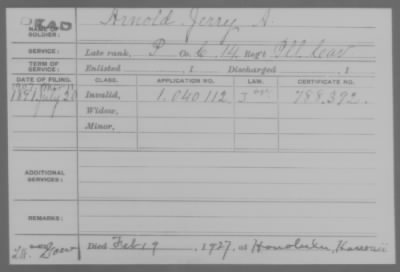 DEAD
NAME OF SOLDIER: Arnold, Jerry A.
SERVICE: Late rank, P Co. C, 14 Reg't Ill Cav
TERM OF SERVICE: Enlisted , 1 Discharged , 1
DATE OF FILING. CLASS. APPLICATION NO. LAW. CERTIFICATE NO.
1891, July 20 Invalid, 1.040.112 788.392.
Widow,
Minor,
ADDITIONAL SERVICES:
REMARKS:
Died Feb 19 , 1927, at Honolulu, Hawaii